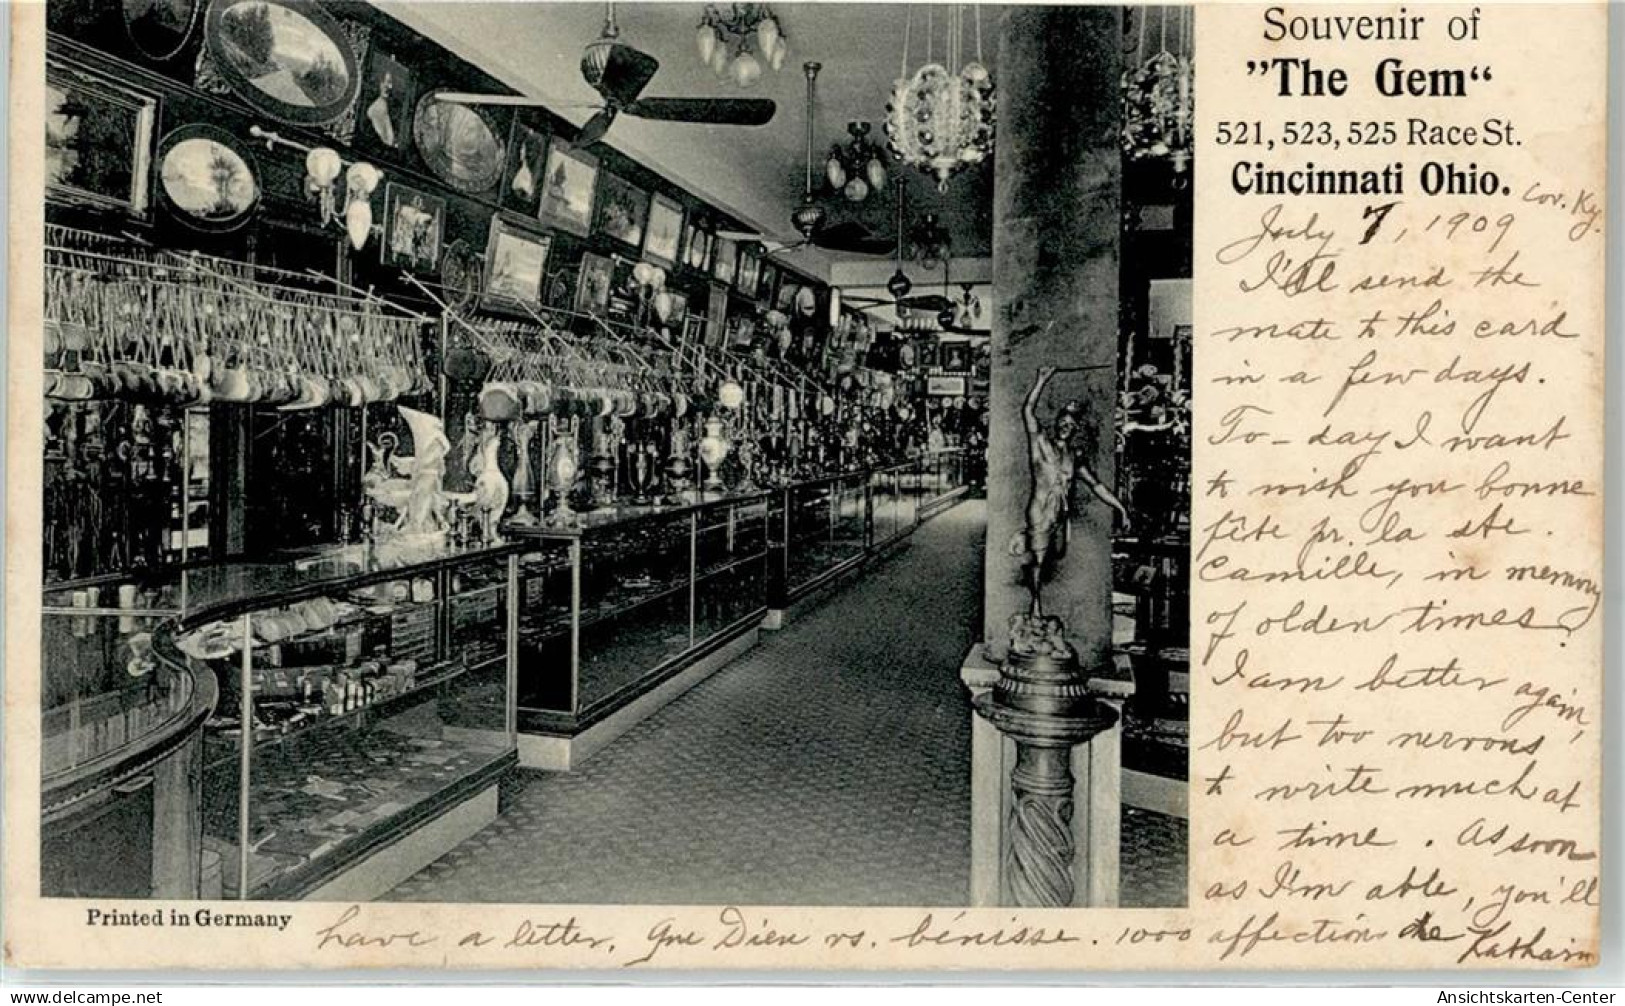 Souvenir of
"The Gem"
521, 523, 525 Race St.
Cincinnati Ohio.
Cov. Ky.
July 7, 1909
I'll send the
mate to this card
in a few days.
To-day I want
to wish you bonne
fête pr. la ste.
Camille, in memory
of olden times.
I am better again,
but too nervous
to write much at
a time. As soon
as I'm able, you'll
have a letter. Que Dieu vs. bénisse. 1000 affections de Katharin
Printed in Germany
delcampe.net
Ansichtskarten-Center